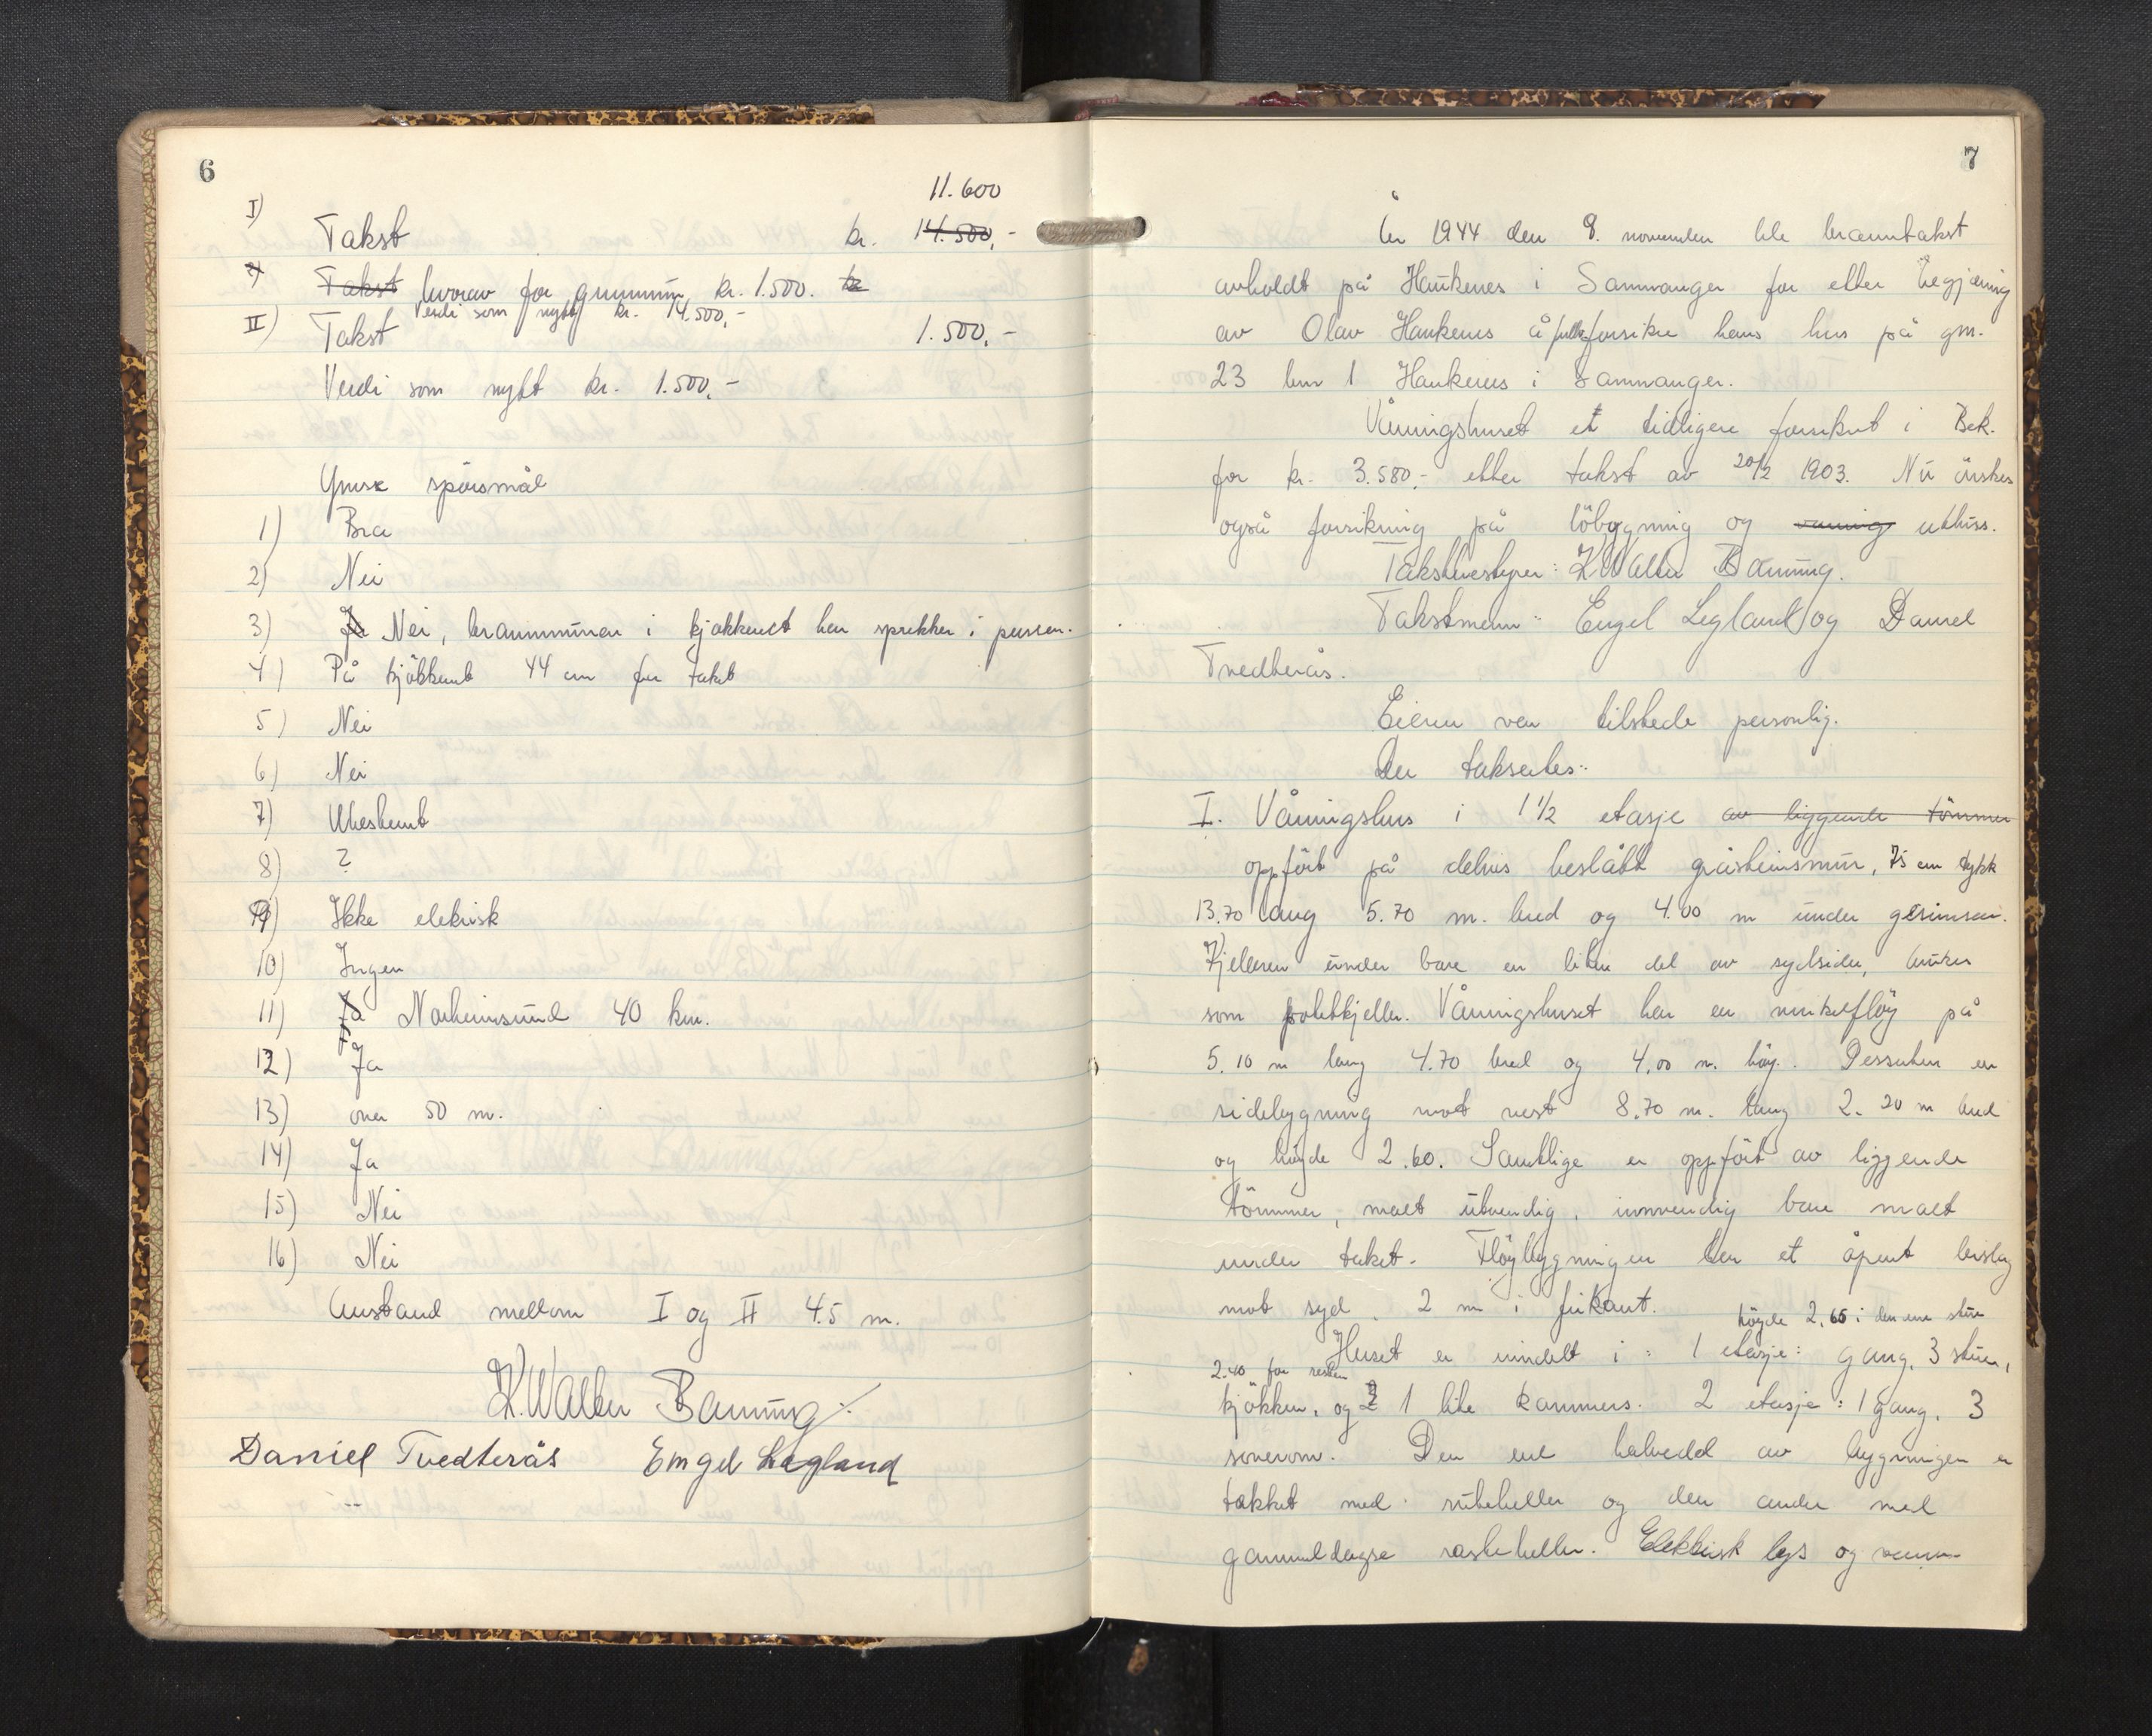 6
11.600
I) Takst kr. 14.500,-
Takst hvorav for grunnmur kr. 1.500. kr
Verdi som nytt kr. 14.500,-
II) Takst 1.500,-
Verdi som nytt kr. 1.500,-
Ymse spörsmål
1) Bra
2) Nei
3) Ja Nei, brannmuren i kjøkkenet har sprekker i pussen.
4) På kjökkenet 44 cm fra taket
5) Nei
6) Nei
7) Ubestemt
8) ?
9) Ikke elektrisk
10) Ingen
11) Ja Norheimsund 40 km.
12) Ja
13) over 50 m.
14) Ja
15) Nei
16) Nei
Avstand mellom I og II 45 m.
K. Walter Bauming
Daniel Tvedterås Engel Legland
7
År 1944 den 8. november ble branntakst
avholdt på Haukenes i Samnanger for etter begjæring
av Olav Haukenes å fullforsikre hans hus på gnr.
23 bnr 1 Haukenes i Samnanger.
Våningshuset et tidligere forsikret i Bek.
for kr. 3.580,- etter takst av 20/2 1903. Nu önskes
også forsikring på löbygning og uthus.
Takstbestyrer: K Walter Bauming.
Takstmenn: Engel Legland og Daniel
Tvedterås.
Eieren var tilstede personlig.
Der taksertes:
I. Våningshus i 1 1/2 etasje av liggende tömmer
oppfört på delvis beslått gråsteinsmur, 75 cm tykk
13.70 lang 5.70 m. bred og 4.00 m under gesimsen.
Kjelleren under bare en liten del av sydsiden, brukes
som potetkjeller. Våningshuset har en vinkelflöy på
5.10 m lang 4.70 bred og 4.00 m. höy. Dessuten en
sidebygning mot vest 8.70 m. lang 2.20 m bred
og höyde 2.60. Samtlige er oppfört av liggende
tömmer, malt utvendig, innvendig bare malt
under taket. Flöybygningen har et åpent bislag
mot syd 2 m i firkant.
höyde 2.65 i den ene stue
Huset er inndelt i: 1 etasje: gang, 3 stuer,
2.40 for resten
kjökken, og 1 lite kammers. 2 etasje: 1 gang, 3
soverom. Den ene halvdel av bygningen er
takket med ruteheller og den andre med
gammeldagse rasteheller. Elektrisk lys og vann-